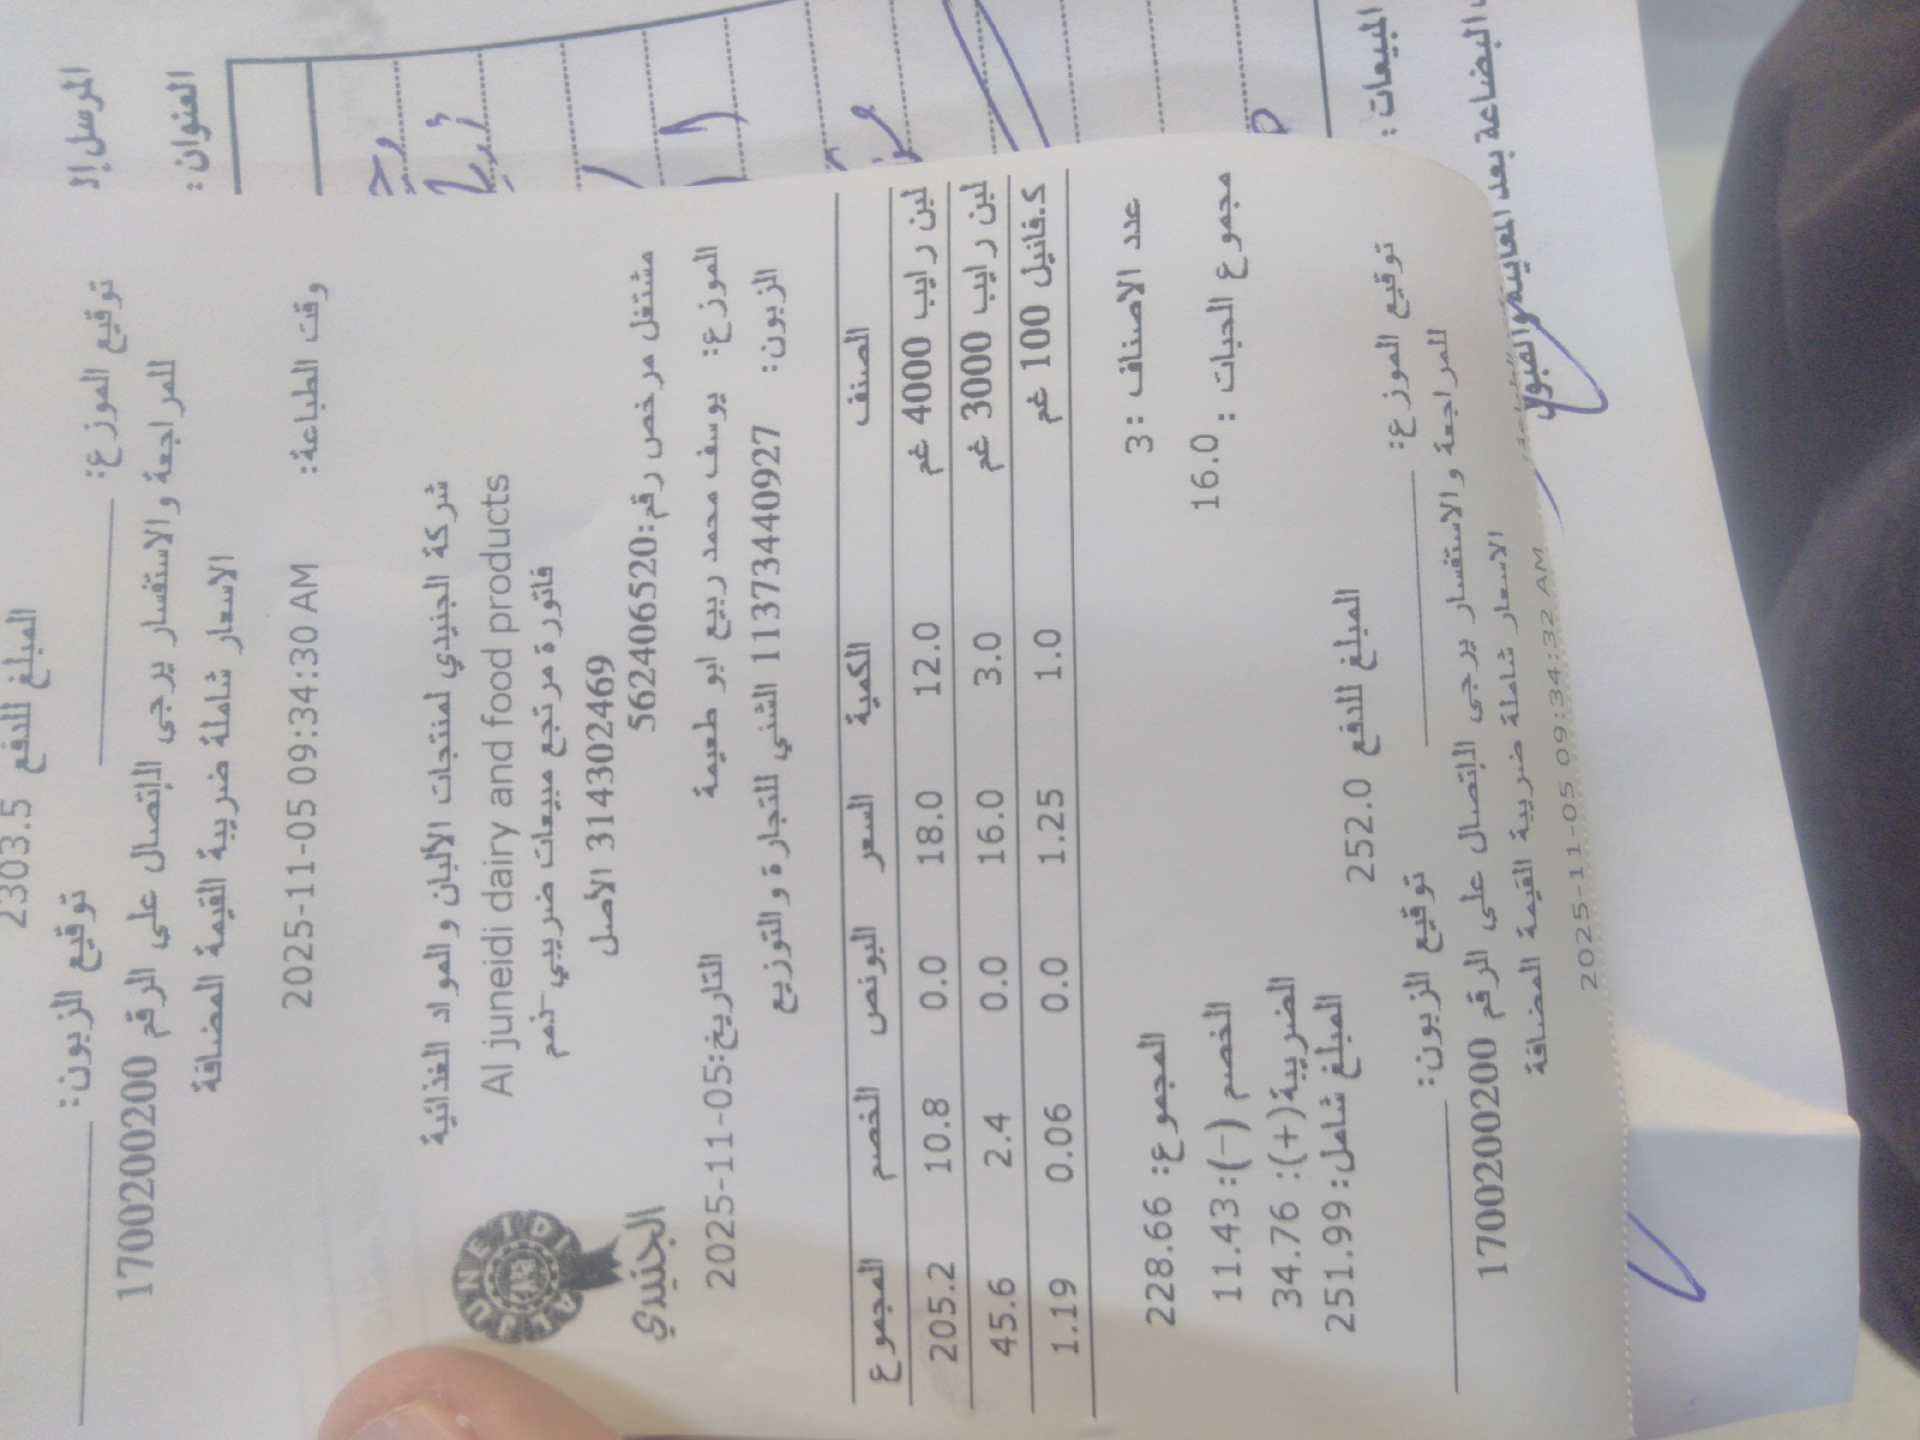 المبلغ للدفع 2303.5
توقيع الزبون: توقيع الموزع:
للمراجعة والاستفسار يرجى الإتصال على الرقم 1700200200
الاسعار شاملة ضريبة القيمة المضافة
وقت الطباعة: 2025-11-05 09:34:30 AM
المرسل إلـ
العنوان:
شركة الجنيدي لمنتجات الألبان و المواد الغذائية
Al juneidi dairy and food products
فاتورة مرتجع مبيعات ضريبي-ذمم
314302469 الأصل
مشتغل مرخص رقم:562406520
AL JUNEIDI
الجنيدي
الموزع: يوسف محمد ربيع ابو طعيمة التاريخ:2025-11-05
الزبون: 1137344092​7 الشني للتجارة و التوزيع
الصنف الكمية السعر البونص الخصم المجموع
لبن رايب 4000 غم 12.0 18.0 0.0 10.8 205.2
لبن رايب 3000 غم 3.0 16.0 0.0 2.4 45.6
ك.فانيل 100 غم 1.0 1.25 0.0 0.06 1.19
عدد الاصناف :3 المجموع: 228.66
مجموع الحبات : 16.0 الخصم (-):11.43
الضريبة(+): 34.76
المبلغ شامل:251.99
المبلغ للدفع 252.0
توقيع الزبون: توقيع الموزع:
للمراجعة والاستفسار يرجى الإتصال على الرقم 1700200200
الاسعار شاملة ضريبة القيمة المضافة
2025-11-05 09:34:32 AM
المبيعات :
البضاعة بعد المعاينة والقبول